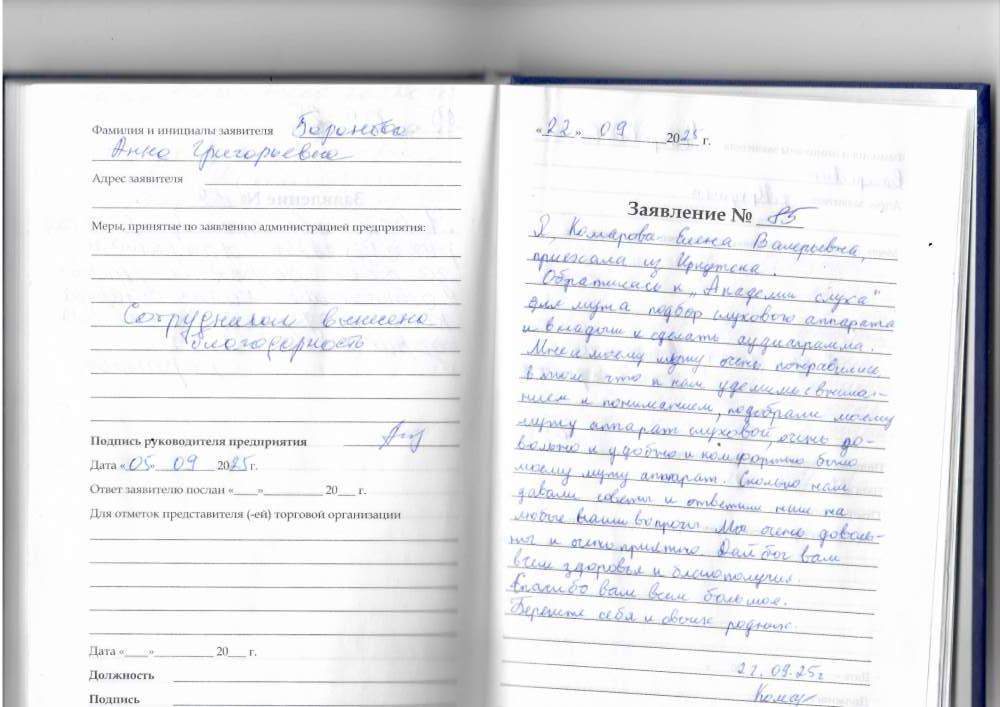 Фамилия и инициалы заявителя Баранова
Анна Григорьевна
Адрес заявителя
Меры, принятые по заявлению администрацией предприятия:
Сотрудникам вынесена
благодарность
Подпись руководителя предприятия
Дата «05» 09 2025 г.
Ответ заявителю послан «____»__________ 20___ г.
Для отметок представителя (-ей) торговой организации
Дата «____»__________ 20___ г.
Должность
Подпись
«22» 09 2025 г.
Заявление № 85
Я, Комарова Елена Валерьевна,
приехала из Иркутска.
Обратились к „Академии слуха"
для мужа подбор слухового аппарата
и вкладыш и сделать аудиаграмма.
Мне и моему мужу очень понравились
в том что к нам уделили с внима-
нием и пониманием, подобрали моему
мужу аппарат слуховой очень до-
вольно и удобно и комфортно было
моему мужу аппарат. Сколько нам
давали советы и ответили нам на
любые ваши вопросы. Мы очень доволь-
ны и очень приятно. Дай бог вам
всем здоровья и благополучия.
Спасибо вам всем большое.
Берегите себя и своих родных.
22.09.25 г